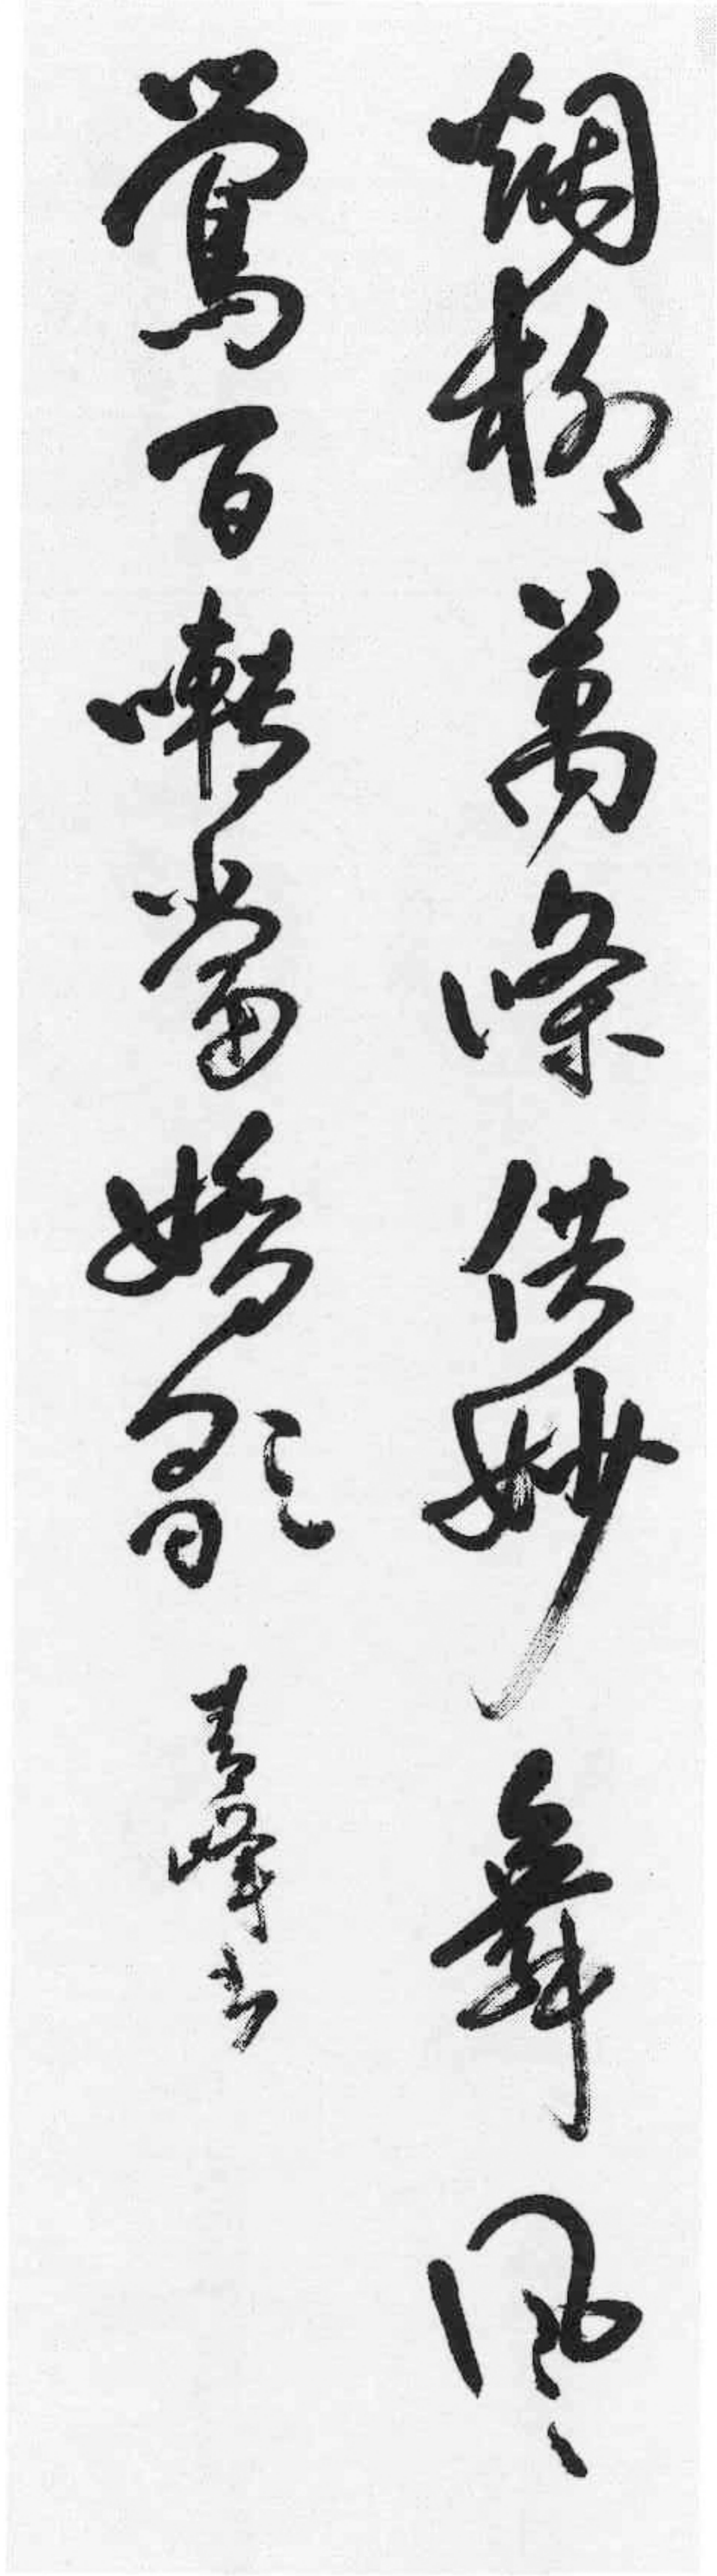 烟柳萬條供妙舞風
鶯百囀當嬌歌 青峰書